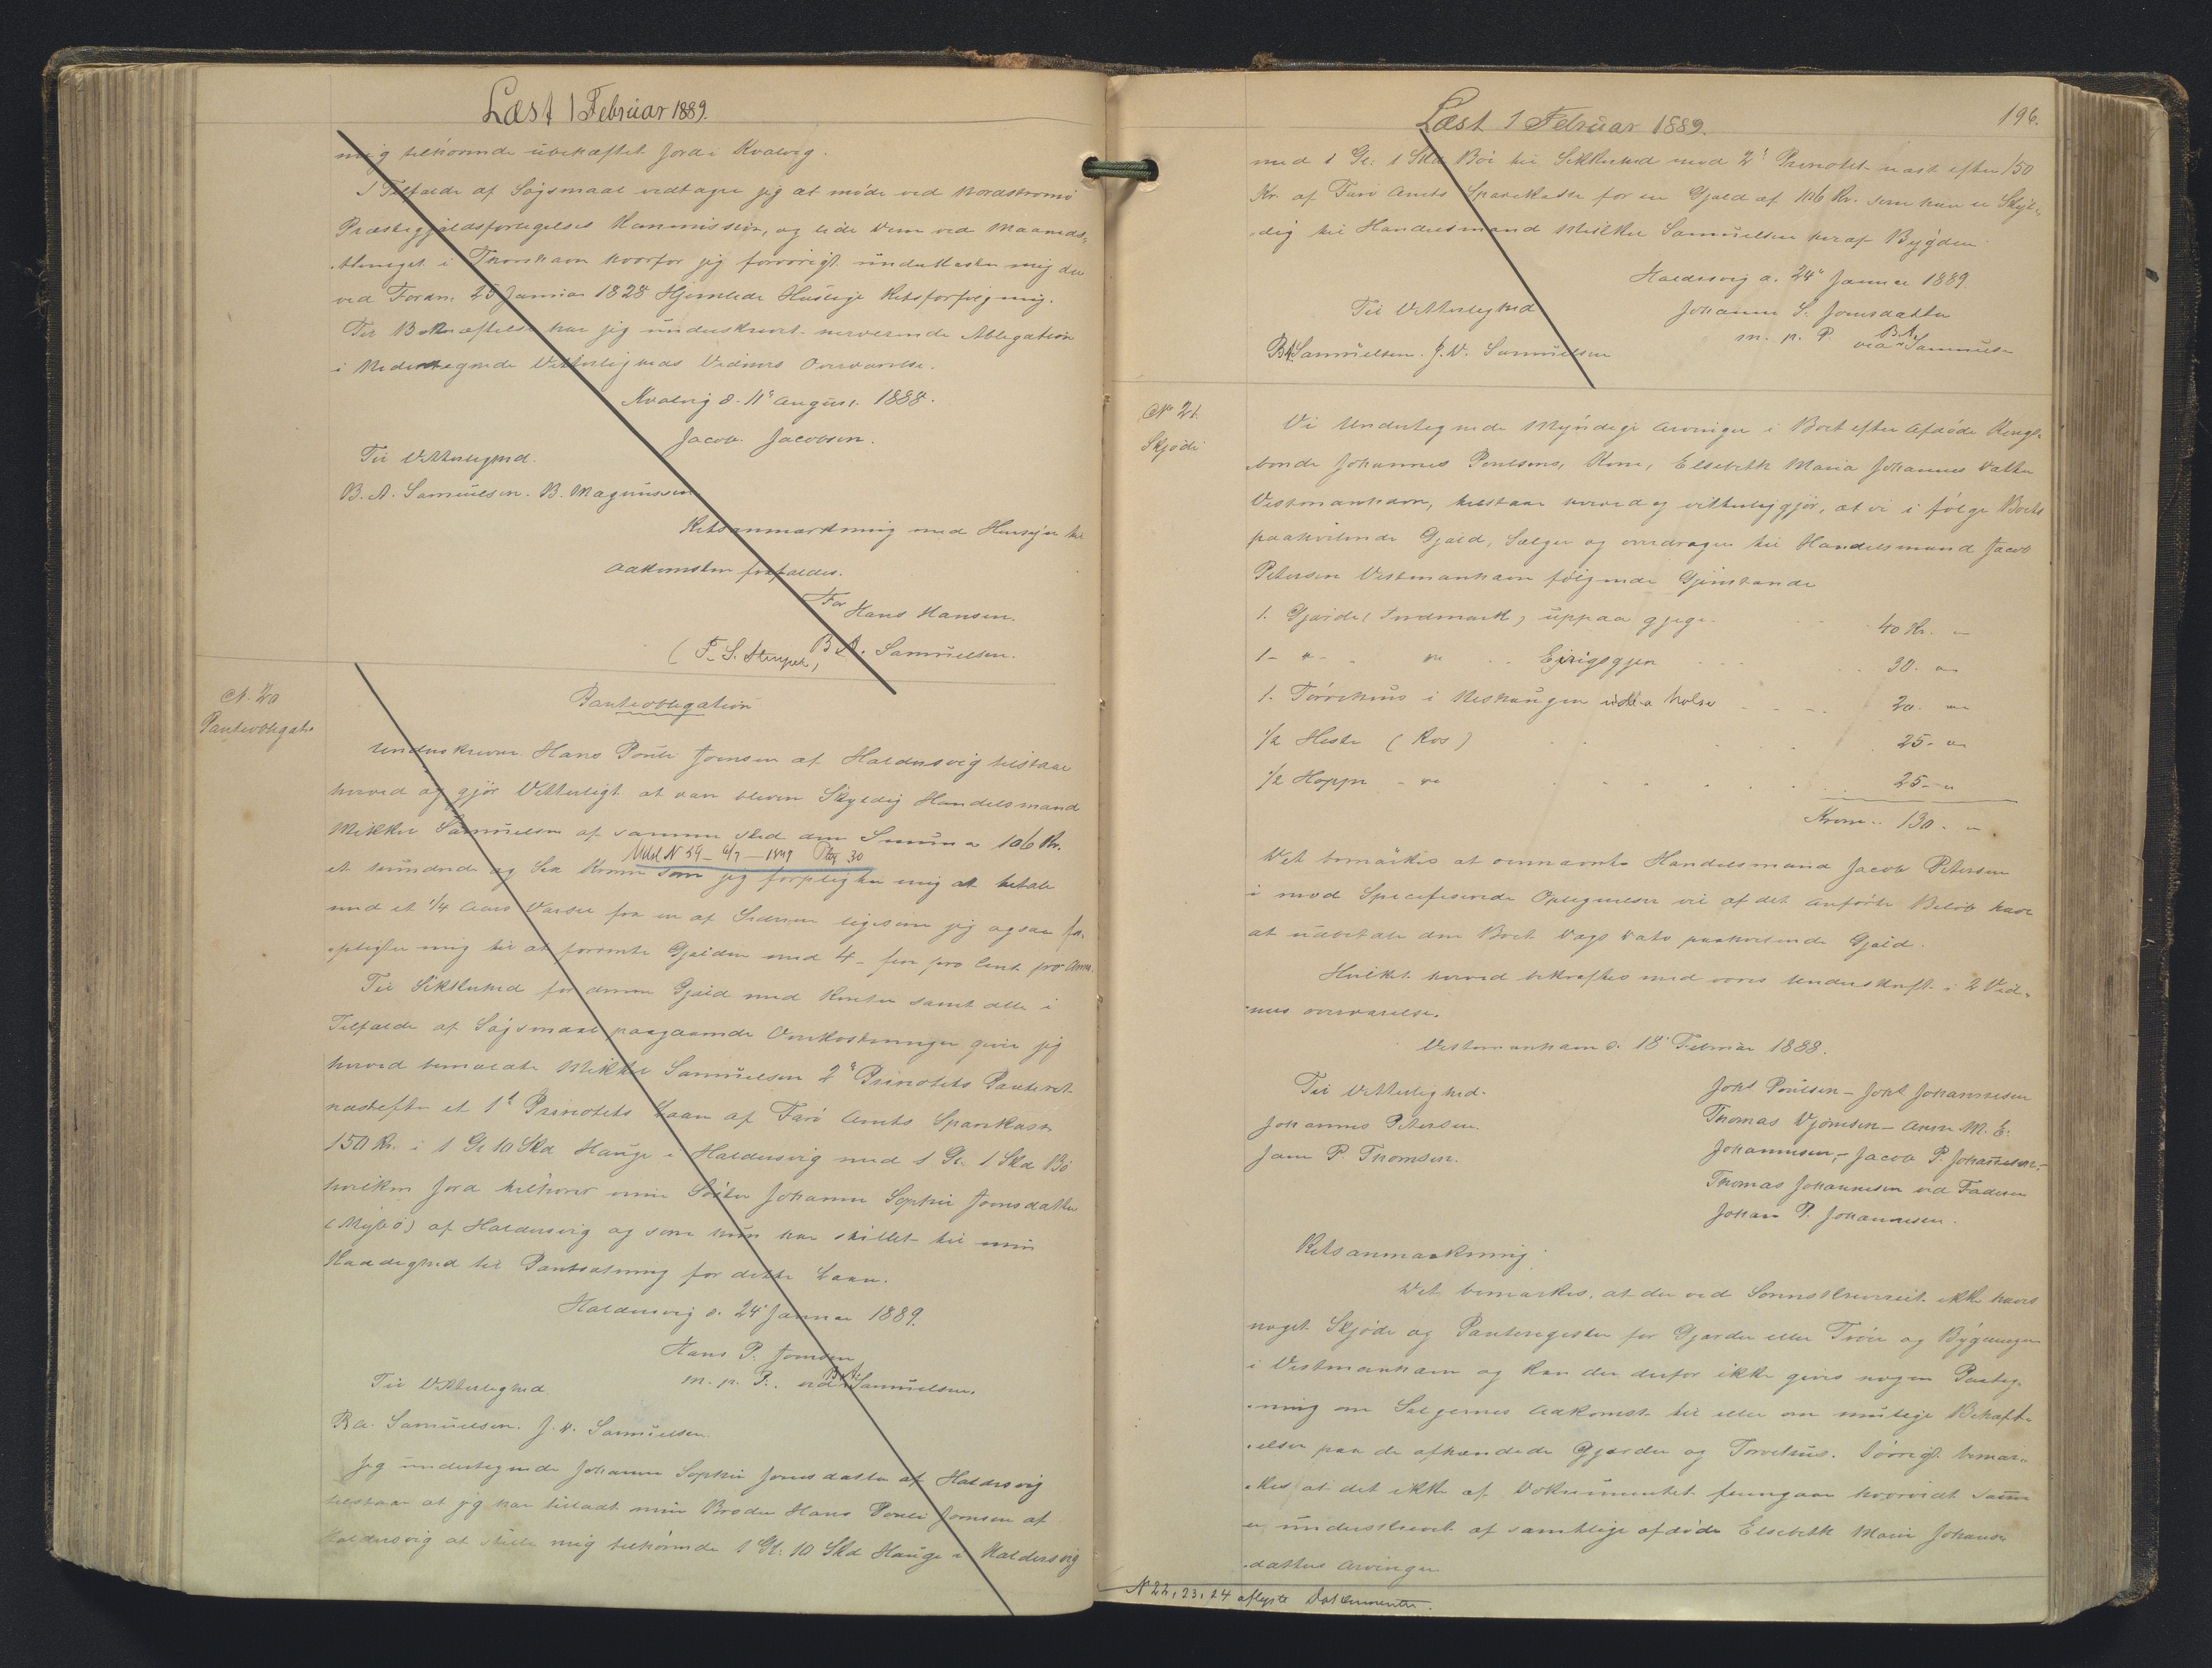 Læst 1 Februar 1889.
mig tilhörende ubehæftet Jord i Kvalvig.
I Tilfælde af Søgsmaal vedtager jeg at møde ved Nordstrømø
Præstegjældsforlegelses Kommission, og lide Dom ved Maaneds-
tinget i Thorshavn hvorfor jeg forövrigt underkaster mig den
ved Fordn. 25 Januar 1828 Hjemlede Hastige Retsforfølgning.
Til Bekræftelse har jeg underskrevet nærværende Obligation
i Nedentegnede Vitterligheds Vidners Overværelse.
Kvalvig d. 11' August 1888.
Jacob Jacobsen.
Til Vitterlighed.
B. A. Samuelsen. B. Magnussen
Retsanmærkning med Hensyn til
Adkomsten frafaldes.
For Hans Hansen.
B. A. Samuelsen.
(F. S. Stempel)
N. 20
Panteobligatio
Panteobligation
Underskreven Hans Pouli Joensen af Haldersvig tilstaar
herved og gjör Vitterligt at være bleven Skyldig Handelsmand
Mikkel Samuelsen af samme sted den Summa 106 Kr.
Udsl N 59 - 6/7 - 1897 Pag 30
et hundrede og Sex Kroner som jeg forpligter mig at betale
med et 1/4 Aars Varsel fra en af Siderne ligesom jeg ogsaa for-
pligter mig til at forrente Gjælden med 4 - fire pro Cent pro Anno.
Til Sikkerhed for denne Gjæld med Renter samt alle i
Tilfælde af Søgsmaal paagaaende Omkostninger giver jeg
herved bemeldte Mikkel Samuelsen 2' Prioritets Panteret
næstefter et 1' Prioritets Laan af Færö Amts Sparekasse
150 Kr. i 1 Gl 10 Skd Hauge i Haldersvig med 1 Gl. 1 Skd Bö
hvilken Jord tilhörer min Söster Johanne Sophie Joensdatter
(Myrö) af Haldersvig og som hun har stillet til min
Raadighed til Pantsætning for dette Laan.
Haldersvig d. 24' Januar 1889.
Hans P. Joensen
m. p. P. ved B. A. Samuelsen.
Til Vitterlighed.
B A. Samuelsen. J. V. Samuelsen.
Jeg undertegnede Johanne Sophie Joensdatter af Haldersvig
tilstaar at jeg har tilladt min Broder Hans Pouli Joensen af
Haldersvig at stille mig tilhörende 1 Gl. 10 Skd Hauge i Haldersvig
Læst 1 Februar 1889.
196.
med 1 Gl: 1 Skd Böi til Sikkerhed med 2' Prioritet næst efter 150
Kr. af Færö Amts Sparekasse for en Gjæld af 106 Kr. som han er Skyl-
dig til Handelsmand Mikkel Samuelsen her af Bygden
Haldersvig d. 24' Januar 1889.
Til Vitterlighed
Johanne S. Joensdatter
m. p. P. ved B. A. Samuels-
B A Samuelsen. J. V. Samuelsen
No 21.
Skjöde
Vi Undertegnede Myndige Arvinger i Boet efter Afdöde Kongs-
bonde Johannes Poulsens, Kone, Elsebeth Maria Johannes datter
Vestmanhavn, tilstaar herved og vitterliggjör, at vi i fölge Boets
paahvilende Gjæld, Sælger og overdrager til Handelsmand Jacob
Petersen Vestmanhavn fölgende Gjenstande
1. Gjærde (Indmark) uppaa gjege - 40 Kr. "
1 - " - " Eirigsgjea . . . 30. "
1. Törvehuus i Neshaugen uttila holse - - - 20. "
1/2 Heste (Ros) . . . 25 - "
1/2 Hoppe - " . . . 25 - "
Kroner. 130. "
Det bemærkes at ovennævnte Handelsmand Jacob Petersen
i mod Specefiserede Optegnelser vil af det anförte Belöb have
at udbetale den Boet Dags Dato paahvilende Gjæld.
Hvilket herved bekræftes med vores Underskrift i 2 Vid-
ners overværelse.
Vestmanhavn d. 18' Februar 1888.
Til Vitterlighed.
Johannes Petersen.
Jens P. Thomsen.
Johs Poulsen - Johs Johannesen
Thomas Djönesen - Anne M. E.
Johannesen, - Jacob P. Johannesen, -
Thomas Johannesen ved Faderen
Johan P. Johannesen.
Retsanmærkning:
Det bemærkes, at der ved Sorenskriveriet ikke haves
noget Skjöde og Panteregister for Gjærder eller Tröer og Bygninger
i Vestmanhavn og kan der derfor ikke gives nogen Paateg-
ning om Sælgernes Adkomst til eller om mulige Behæft-
elser paa de afhændede Gjærder og Törvehus. Iövrigt bemær-
kes at det ikke af Dokumentet fremgaar hvorvidt samme
er underskrevet af samtlige afdöde Elsebeth Marie Johannes-
datters Arvinger
N 22, 23, 24 aflyste Dokumenter.